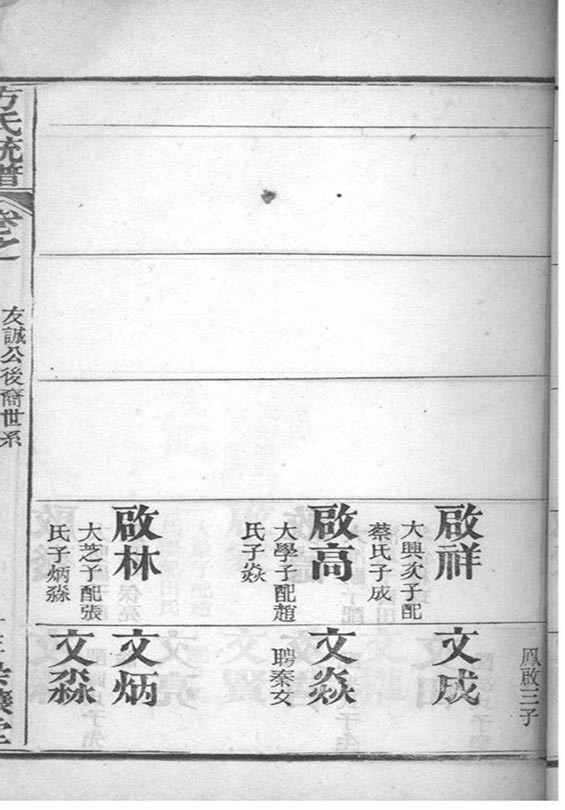 鳳啟三子
啟祥
大興次子配
蔡氏子成
文成
啟高
大學子配趙
氏子焱
文焱
聘秦女
啟林
大芝子配張
氏子炳淼
文炳
文淼
方氏統譜
卷之
友誠公後裔世系